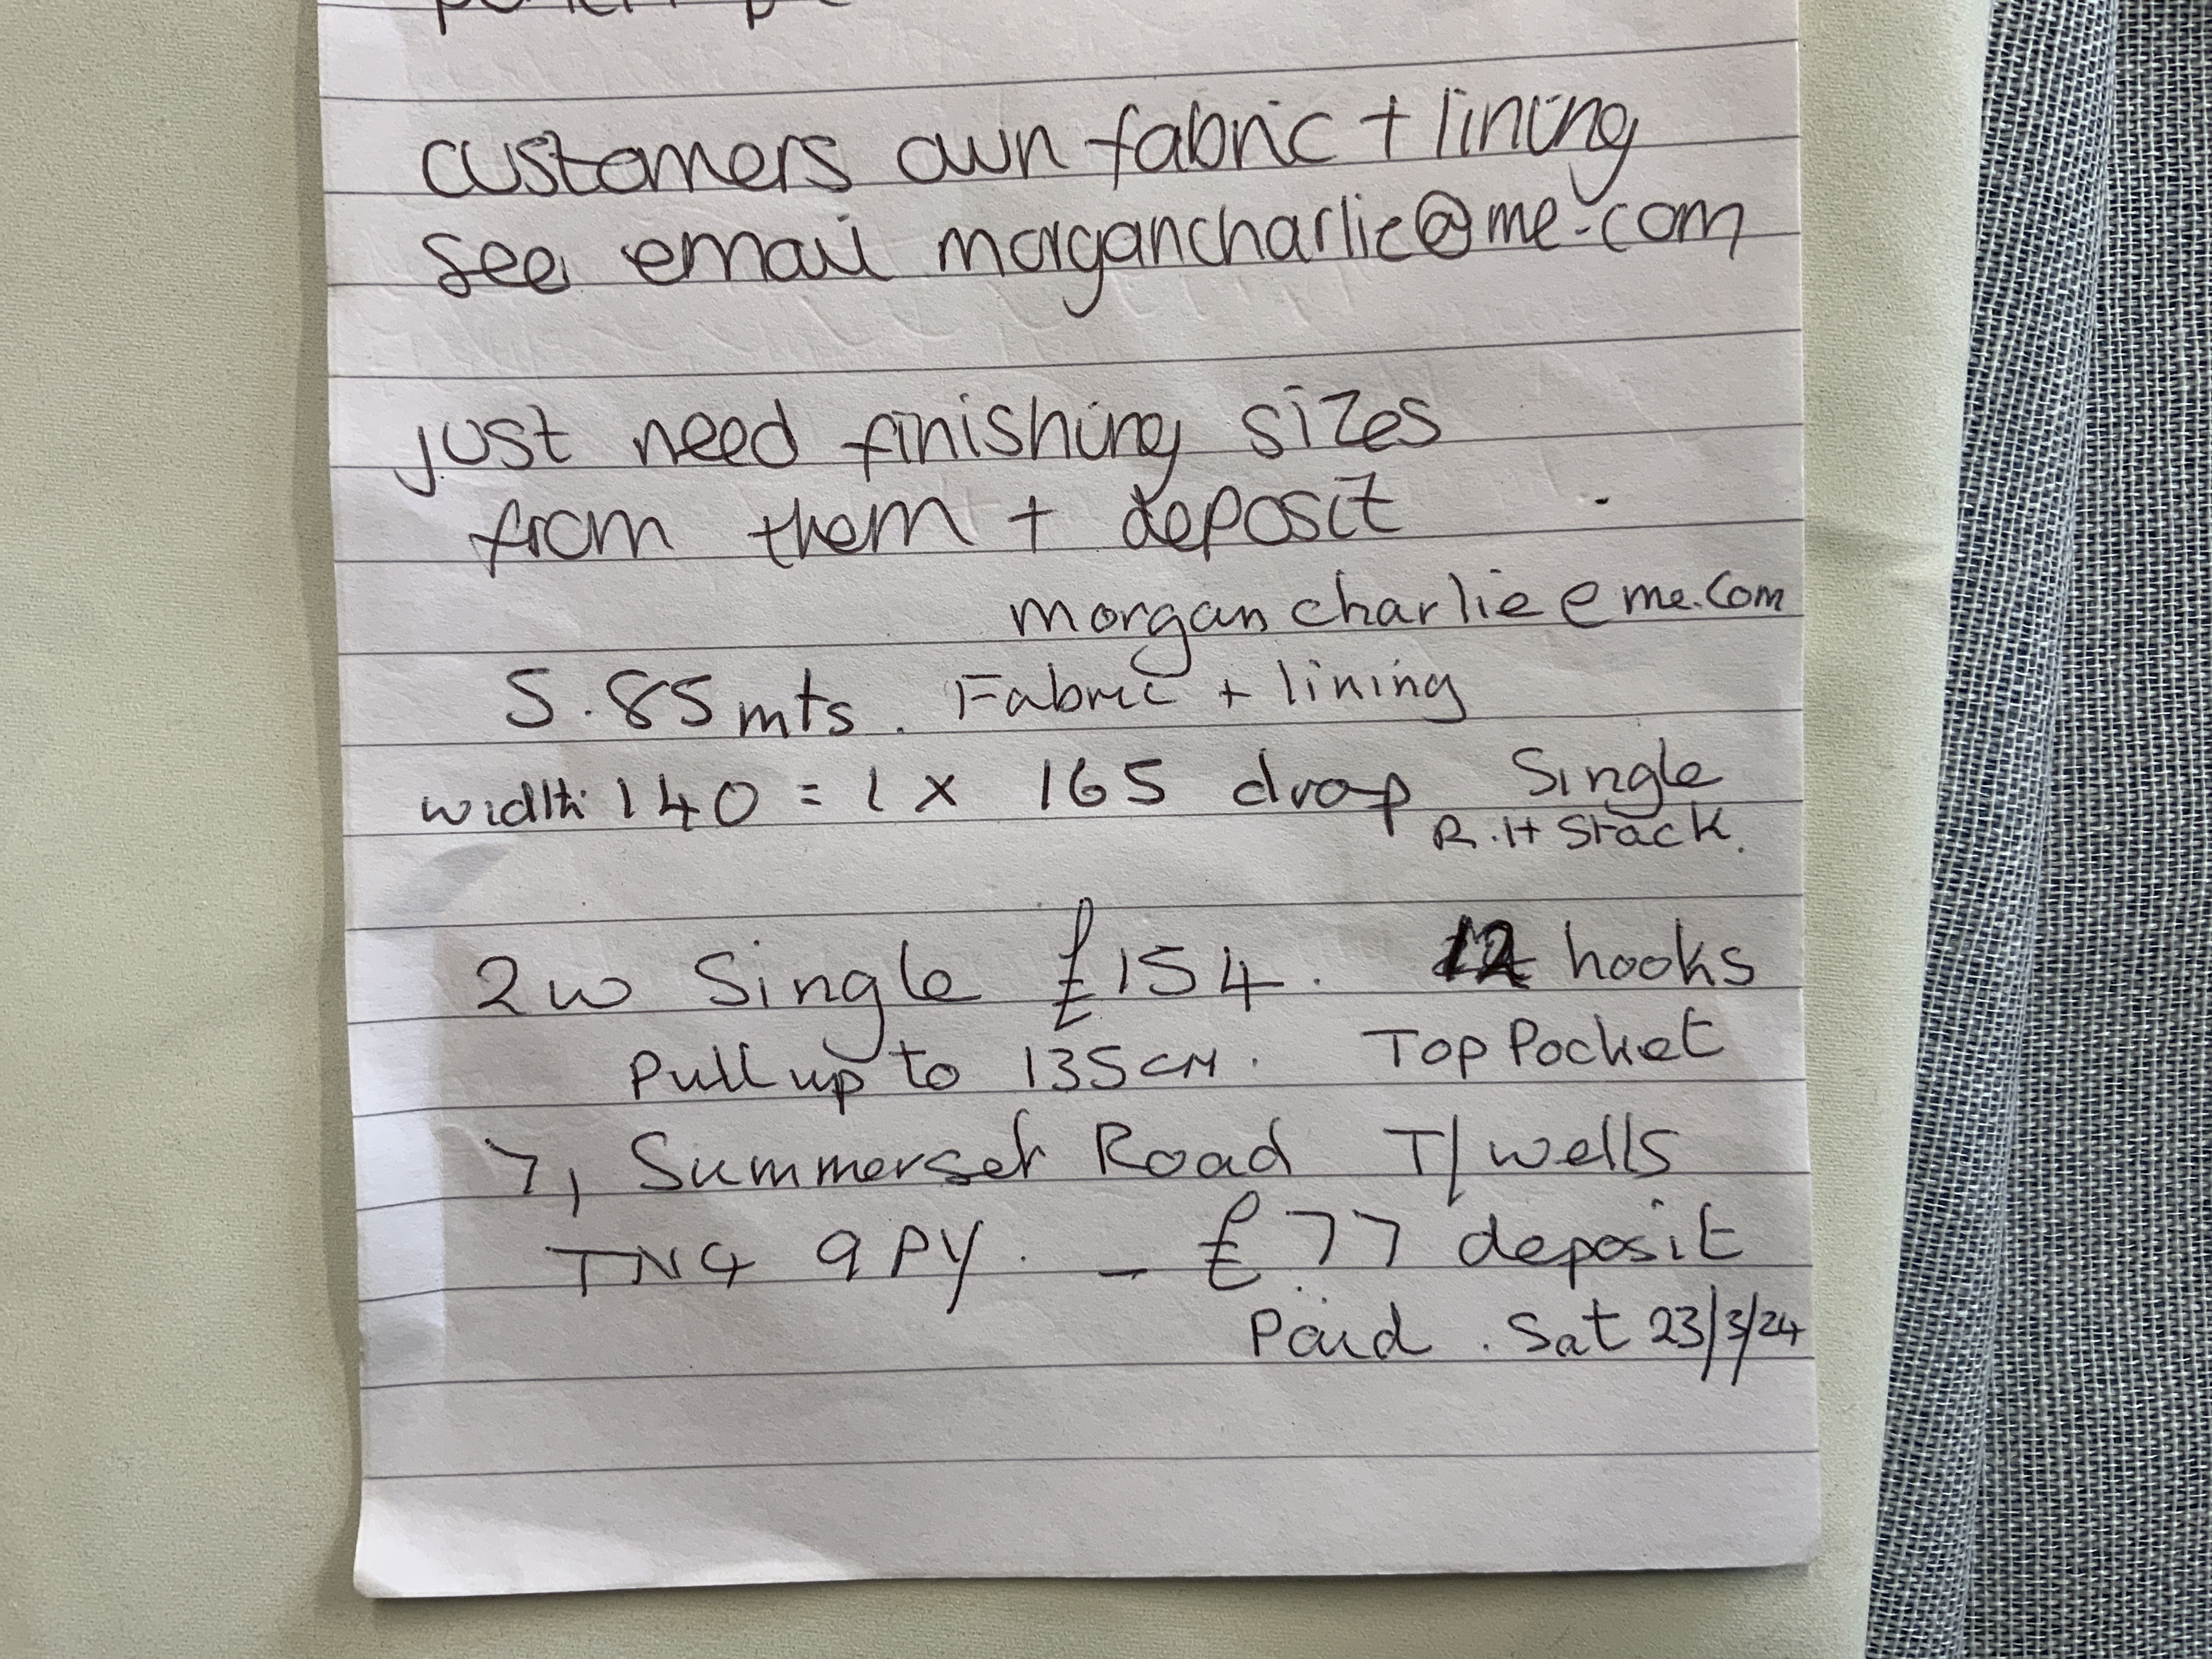 customers own fabric + lining
see email morgancharlie@me.com
just need finishing sizes
from them + deposit
morgancharlie@me.com
5.85mts. Fabric + lining
width 140 = 1 x 165 drop Single
R.H Stack.
2w Single £154. 12 hooks
Pull up to 135cm. Top Pocket
7, Summerset Road T/wells
TN4 9PY. - £77 deposit
Paid. Sat 23/3/24